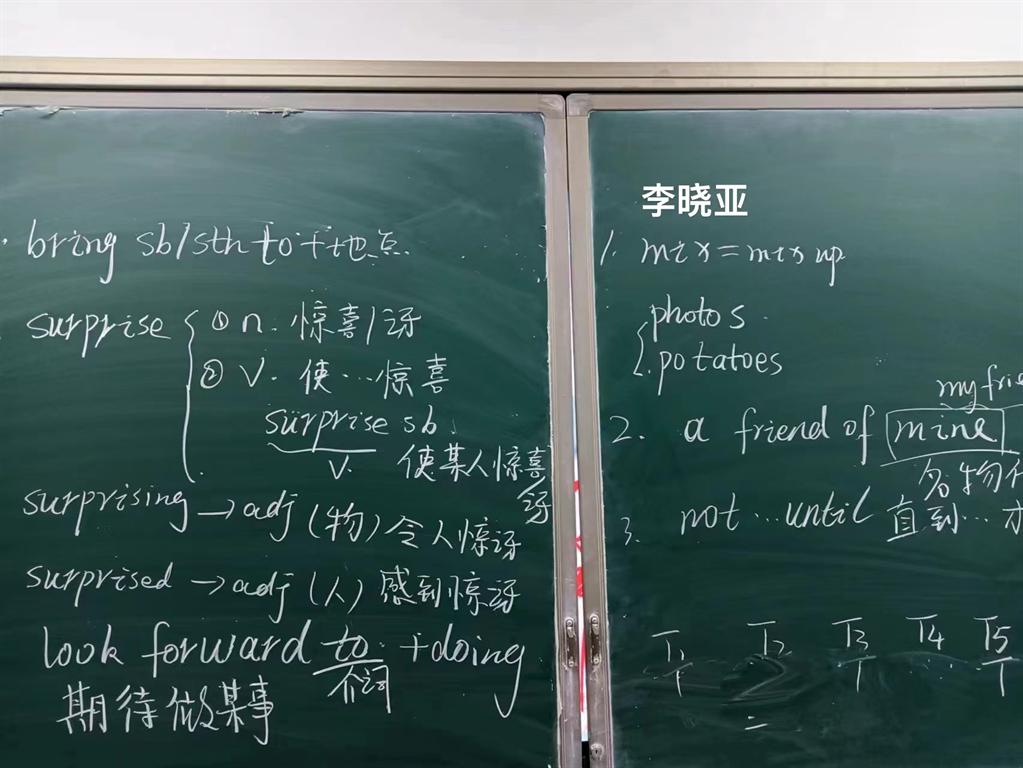 bring sb/sth to + 地点
surprise ① n. 惊喜/讶
② v. 使…惊喜
surprise sb.
v. 使某人惊喜/讶
surprising → adj (物) 令人惊讶
surprised → adj (人) 感到惊讶
look forward to + doing
介词
期待做某事
李晓亚
1. mix = mix up
photos
potatoes
my frie
2. a friend of mine
名物代
3. not … until 直到…才
T1 T2 T3 T4 T5
T = T T